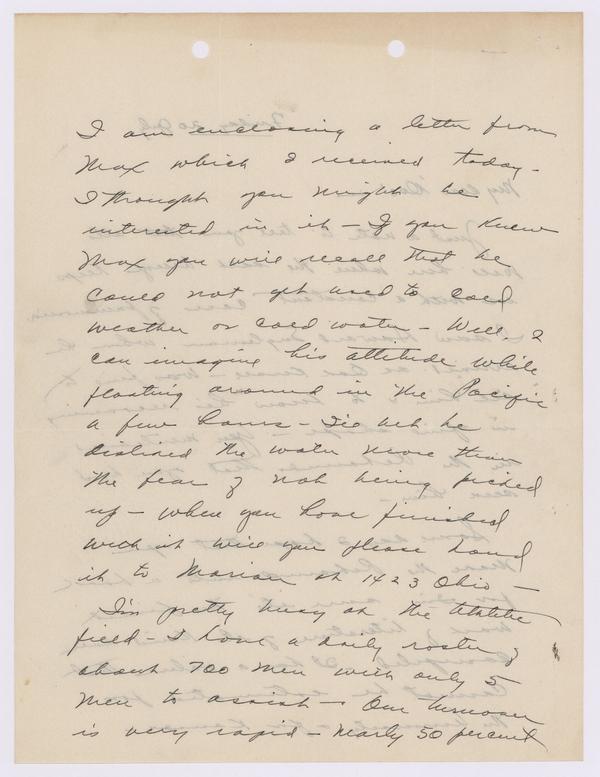 I am enclosing a letter from
Max which I received today -
I thought you might be
interested in it - If you knew
Max you will recall that he
could not get used to cold
weather or cold water - Well, I
can imagine his attitude while
floating around in the Pacific
a few hours - I'll bet he
disliked the water more than
the fear of not being picked
up - When you have finished
with it will you please hand
it to Marian at 1423 Ohio -
I'm pretty busy at the Athletic
field - I have a daily roster of
about 700 men with only 5
men to assist - Our turnover
is very rapid - nearly 50 percent